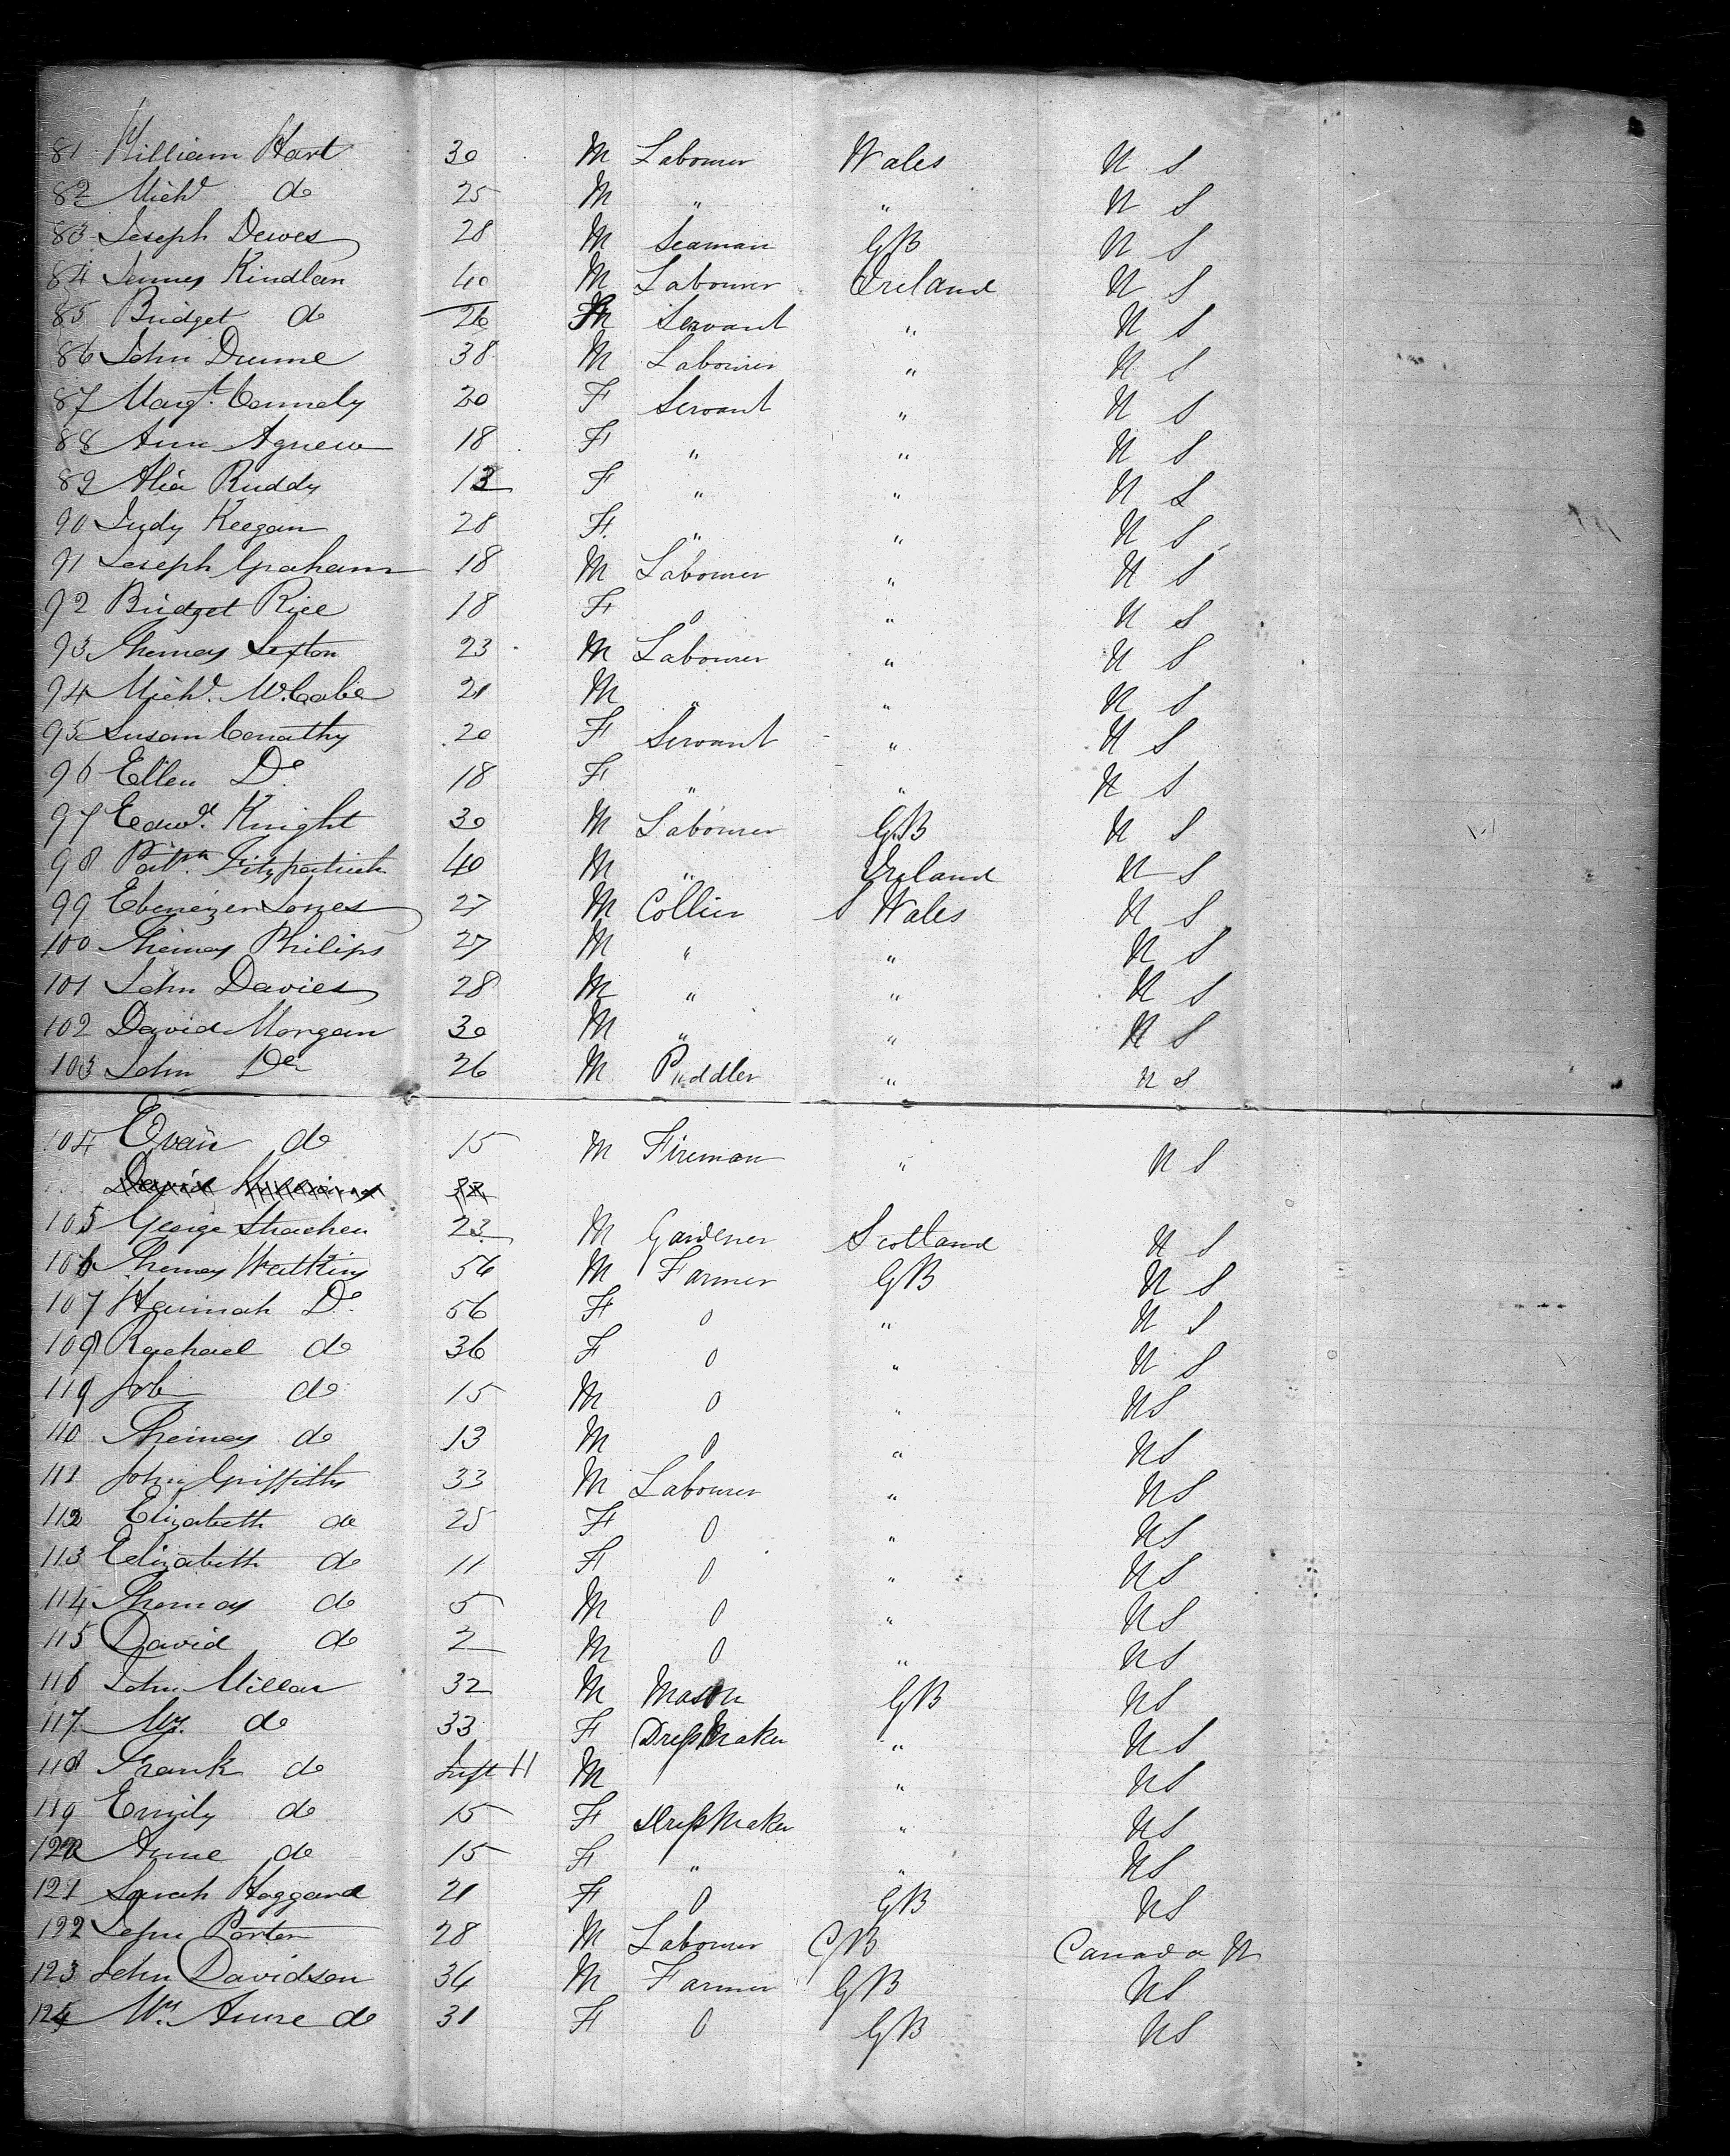 81 William Hart 30 M Labourer Wales U S
82 Michl do 25 M " " U S
83 Joseph Dewes 28 M Seaman GB U S
84 James Kindlan 40 M Labourer Ireland U S
85 Bridget do 26 F Servant " U S
86 John Dunne 38 M Labourer " U S
87 Margt. Connely 20 F Servant " U S
88 Ann Agnew 18 F " " U S
89 Alia Ruddy 13 F " " U S
90 Judy Keegan 28 F " " U S
91 Joseph Graham 18 M Labourer " U S
92 Bridget Rice 18 F 0 " U S
93 Thomas Sexton 23 M Labourer " U S
94 Michl. McCabe 21 M " " U S
95 Susan Conathy 20 F Servant " U S
96 Ellen Do 18 F " " U S
97 Edwd. Knight 30 M Labourer GB U S
98 Fitzpatrick 40 M " Ireland U S
99 Ebenezer Jones 27 M Collier S Wales U S
100 Thomas Philips 27 M " " U S
101 John Davies 28 M " " U S
102 David Morgan 30 M " " U S
103 John Do 26 M Puddler " U S
104 Evan do 15 M Fireman " U S
David
105 George Strachen 23 M Gardener Scotland U S
106 Thomas Watkins 56 M Farmer GB U S
107 Hannah Do 56 F 0 " U S
108 Rachael do 36 F 0 " U S
119 Job do 15 M 0 " US
110 Thomas do 13 M 0 " US
111 John Griffiths 33 M Labourer " US
112 Elizabeth do 25 F 0 " US
113 Elizabeth do 11 F 0 " US
114 Thomas do 5 M 0 " US
115 David do 2 M 0 " US
116 John Millar 32 M Mason GB US
117 Mrs. do 33 F DressMaker " US
118 Frank do Inft 11 M " US
119 Emily do 15 F DressMaker " US
120 Anne do 15 F " " US
121 Sarah Haggard 21 F 0 GB US
122 Porter 28 M Labourer GB Canada W
123 John Davidson 36 M Farmer GB US
124 Mrs. Anne do 31 F 0 GB US